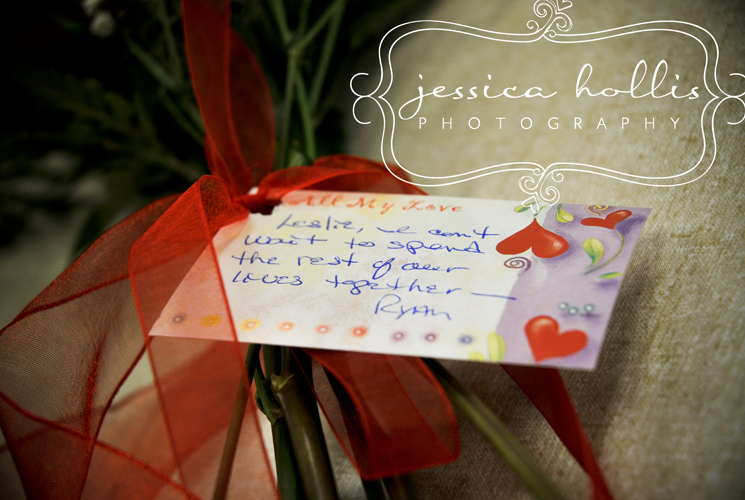 jessica hollis
PHOTOGRAPHY
All My Love
Leslie, can't
wait to spend
the rest of our
lives together —
Ryan